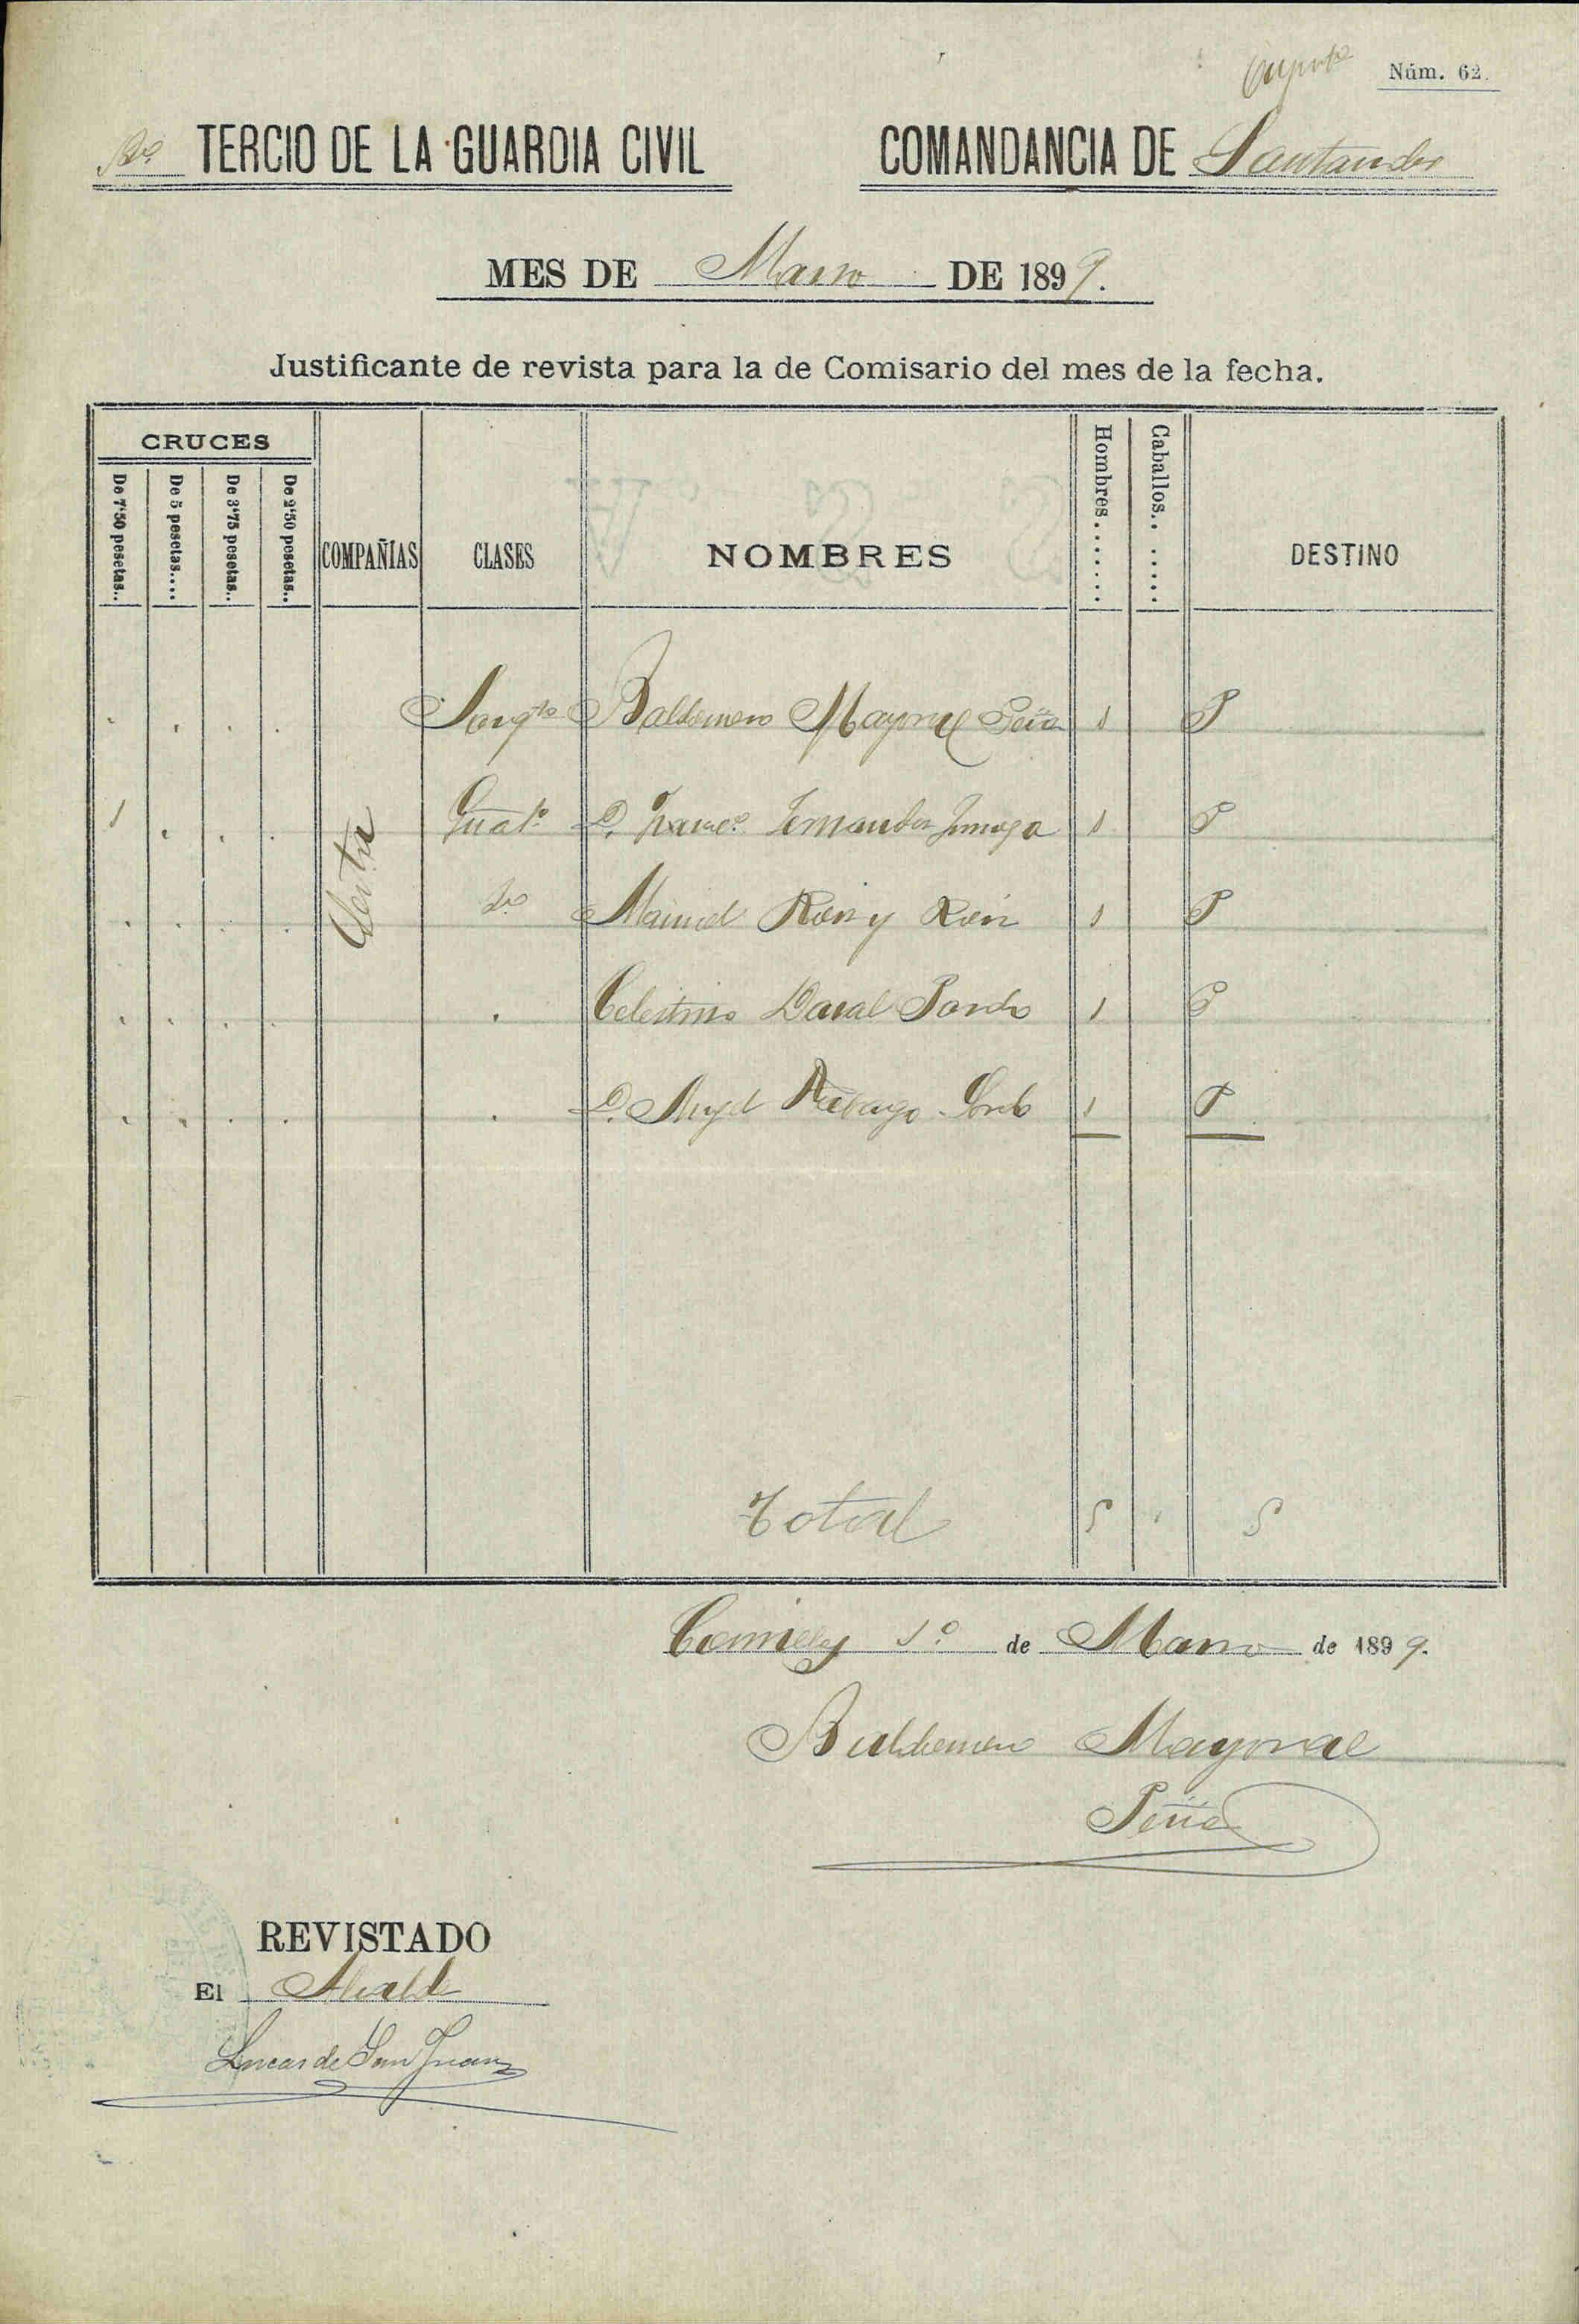 Núm. 62.
TERCIO DE LA GUARDIA CIVIL
COMANDANCIA DE Santander
MES DE Marzo DE 1899.
Justificante de revista para la de Comisario del mes de la fecha.
CRUCES
De 7'50 pesetas..
De 5 pesetas....
De 3'75 pesetas..
De 2'50 pesetas..
COMPAÑIAS
CLASES
NOMBRES
Hombres.......
Caballos.......
DESTINO
Sargto Baldomero Mayoral Peña 1 P
1 Guardª D. Francº Fernandez 1 P
Dº Manuel Ruiz y Ruiz 1 P
Celestino Pardo 1 P
D. Angel Rabago 1 P
Total 5 5
1º de Marzo de 1899.
Baldomero Mayoral
Peña
REVISTADO
El Alcalde
Lucas de San Juan